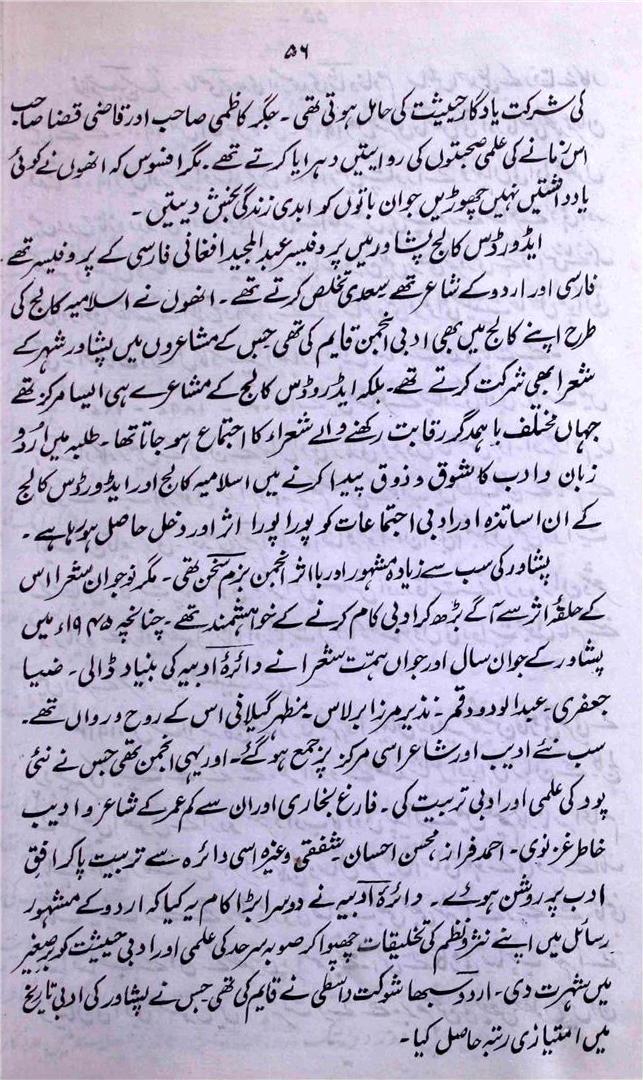 ۵۶
کی شرکت یادگار حیثیت کی حامل ہوتی تھی۔ جگر کاظمی صاحب اور قاضی قضا صاحب
اس زمانے کی علمی صحبتوں کی روایتیں دہرایا کرتے تھے۔ مگر افسوس کہ انھوں نے کوئی
یادداشتیں نہیں چھوڑیں جو ان باتوں کو ابدی زندگی بخش دیتیں۔
ایڈورڈس کالج پشاور میں پروفیسر عبدالمجید افغانی فارسی کے پروفیسر تھے
فارسی اور اردو کے شاعر تھے سعدی تخلص کرتے تھے۔ انھوں نے اسلامیہ کالج کی
طرح اپنے کالج میں بھی ادبی انجمن قایم کی تھی جس کے مشاعروں میں پشاور شہر کے
شعرا بھی شرکت کرتے تھے۔ بلکہ ایڈروڈس کالج کے مشاعرے ہی ایسا مرکز تھے
جہاں مختلف باہمدگر رقابت رکھنے والے شعراء کا اجتماع ہو جاتا تھا۔ طلبہ میں اُردو
زبان و ادب کا شوق و ذوق پیدا کرنے میں اسلامیہ کالج اور ایڈورڈس کالج
کے ان اساتذہ اور ادبی اجتماعات کو پورا پورا اثر اور دخل حاصل ہو رہا ہے۔
پشاور کی سب سے زیادہ مشہور اور بااثر انجمن بزم سخن تھی۔ مگر نوجوان شعرا اس
کے حلقۂ اثر سے آگے بڑھ کر ادبی کام کرنے کے خواہشمند تھے۔ چنانچہ ۱۹۴۵ء میں
پشاور کے جوان سال اور جواں ہمّت شعرا نے دائرۂ ادبیہ کی بنیاد ڈالی۔ ضیا
جعفری۔ عبدالودود قمر۔ نذیر مرزا برلاس۔ مظہر گیلانی اس کے روح و رواں تھے۔
سب نئے ادیب اور شاعر اسی مرکز پر جمع ہو گئے۔ اور یہی انجمن تھی جس نے نئی
پود کی علمی اور ادبی تربیت کی۔ فارغ بخاری اور ان سے کم عمر کے شاعر و ادیب
خاطر غزنوی۔ احمد فراز، محسن احسان۔ شفقی وغیرہ اسی دائرہ سے تربیت پا کر افق
ادب پر روشن ہوئے۔ دائرۂ ادبیہ نے دوسرا بڑا کام یہ کیا کہ اردو کے مشہور
رسائل میں اپنے نثر و نظم کی تخلیقات چھپوا کر صوبہ سرحد کی علمی اور ادبی حیثیت کو برصغیر
میں شہرت دی۔ اردو سبھا شوکت واسطی نے قایم کی تھی جس نے پشاور کی ادبی تاریخ
میں امتیازی رتبہ حاصل کیا۔